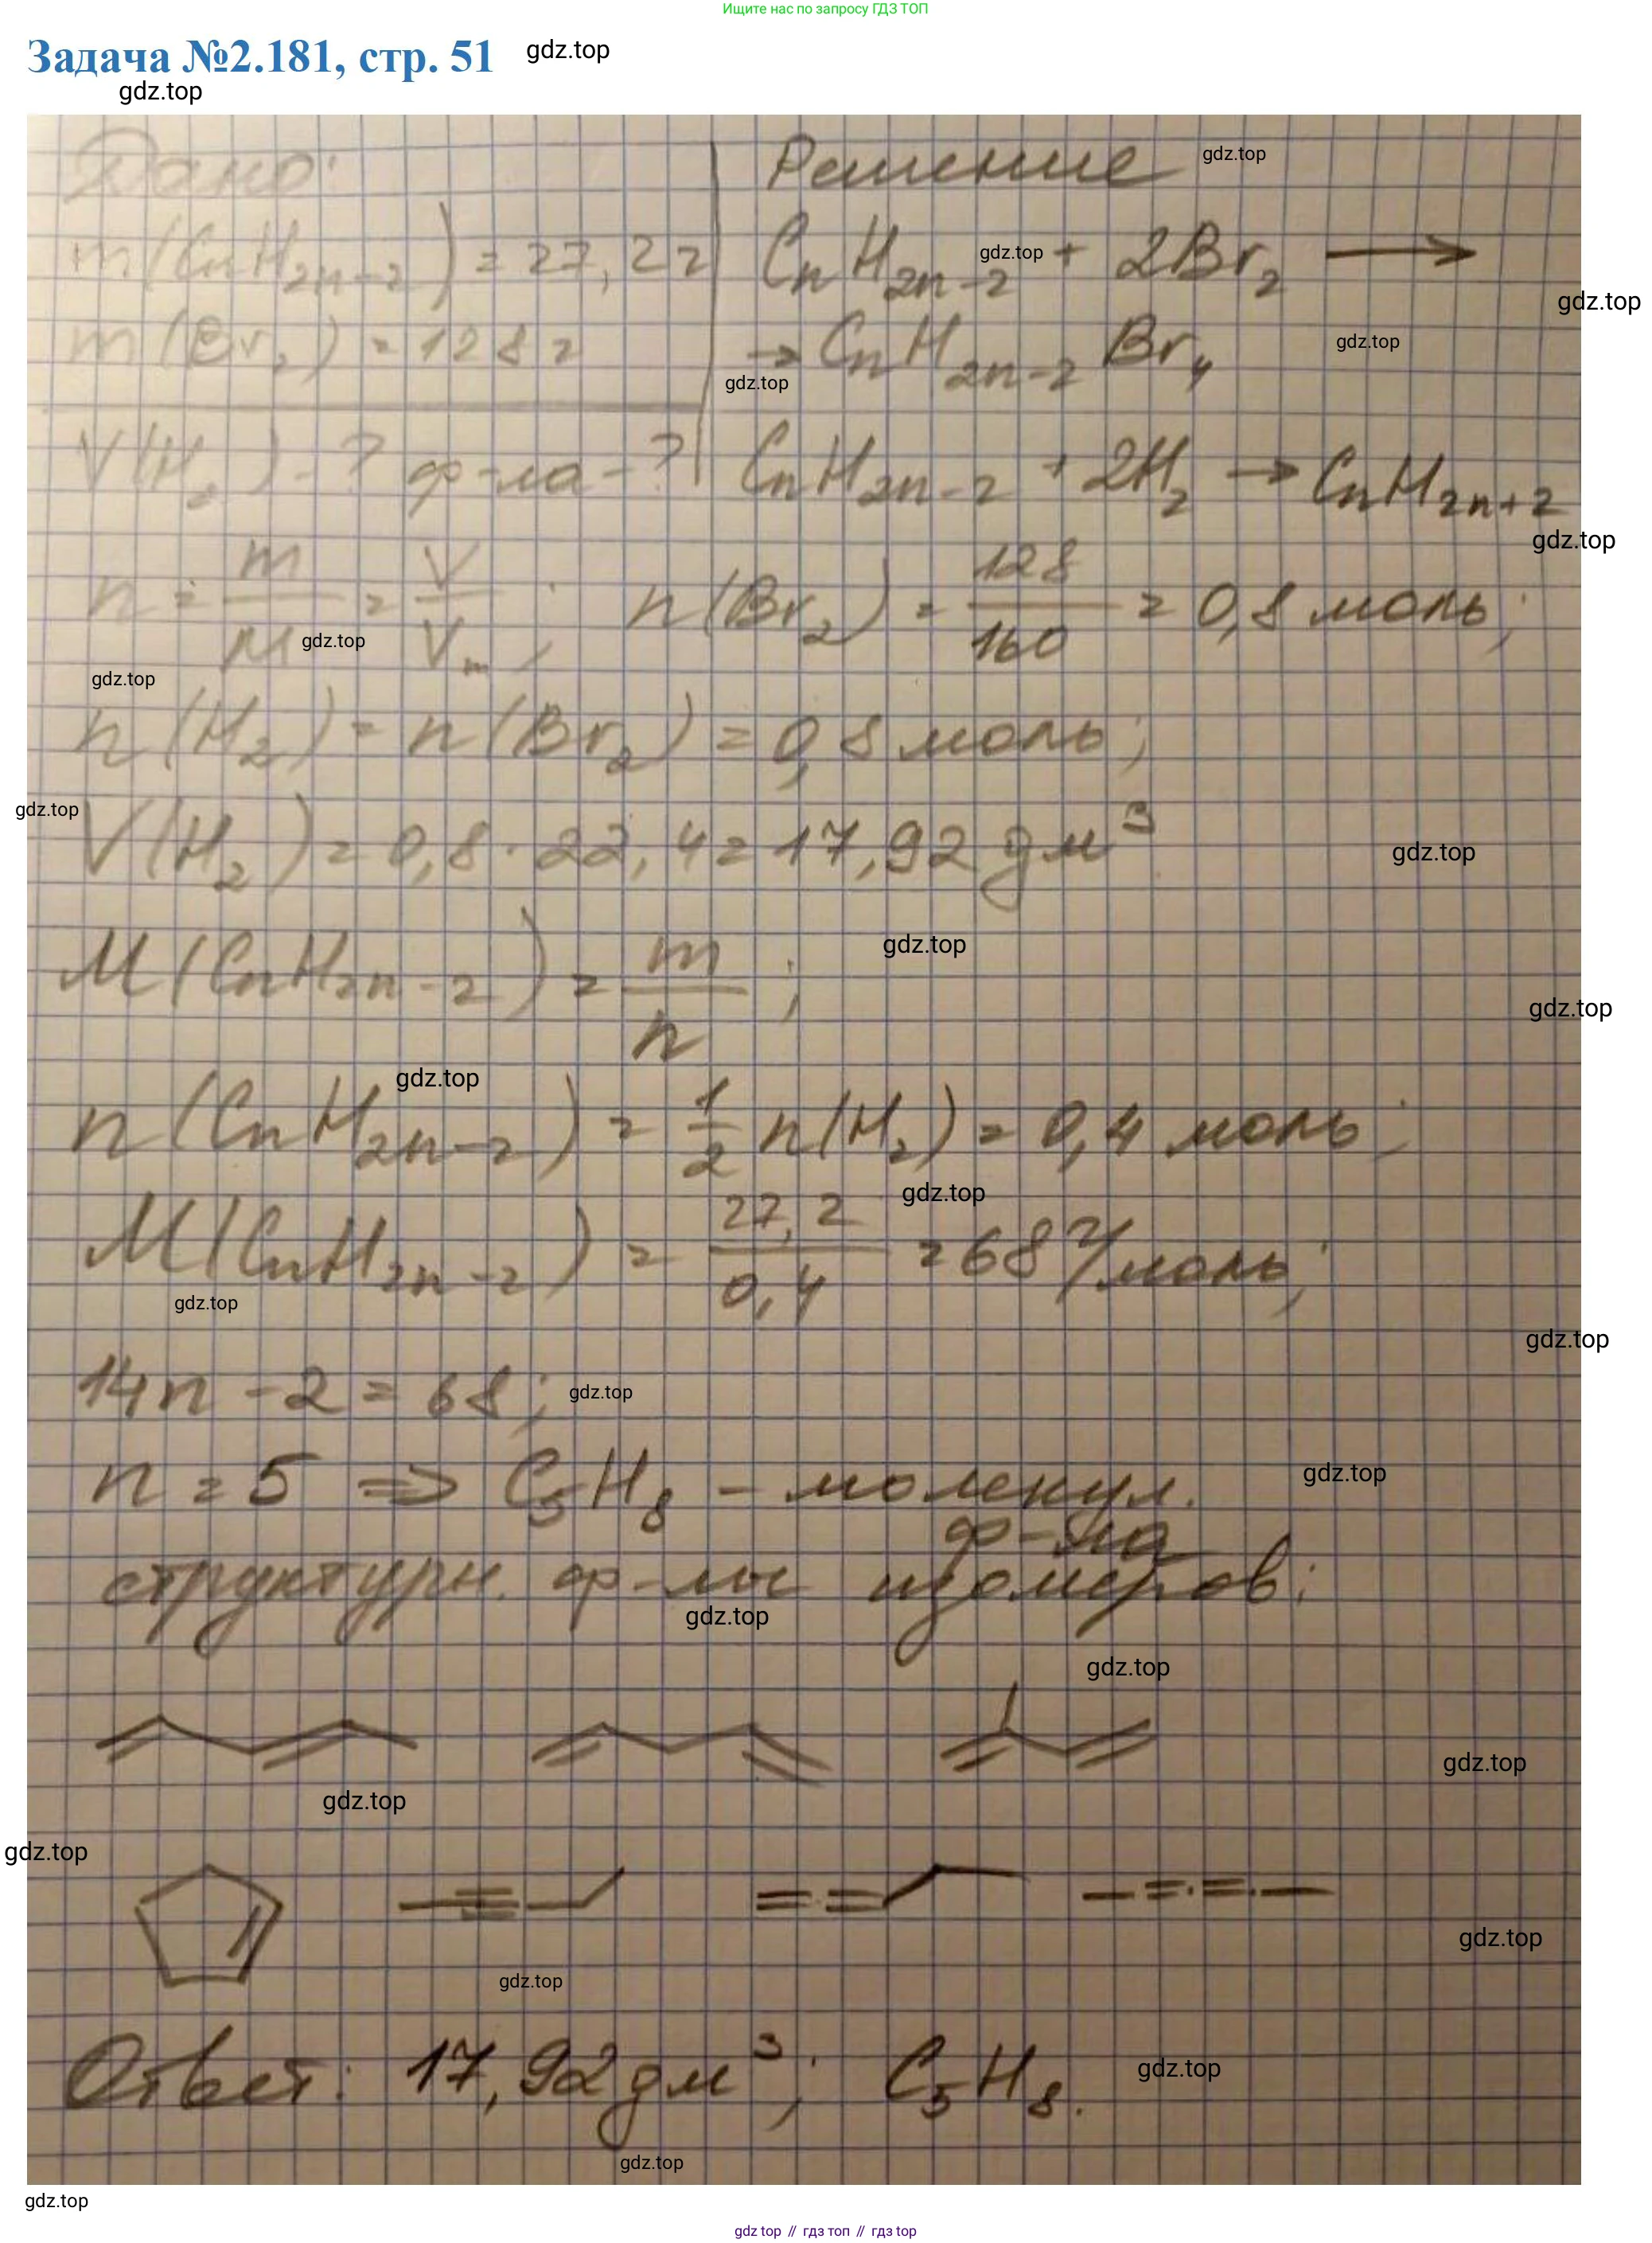 Ищите нас по запросу ГДЗ ТОП
Задача №2.181, стр. 51 gdz.top
gdz.top
Дано: Решение gdz.top
m(CnH2n-2) = 27,2г CnH2n-2 gdz.top + 2Br2 ⟶
gdz.top
m(Br2) = 128г → CnH2n-2Br4 gdz.top
gdz.top
V(H2)-? ф-ла-? CnH2n-2 + 2H2 → CnH2n+2
gdz.top
n = m/M = V/Vm; n(Br2) = 128/160 = 0,8 моль;
gdz.top
gdz.top
n(H2) = n(Br2) = 0,8 моль;
gdz.top
V(H2) = 0,8 · 22,4 = 17,92 дм³
gdz.top
gdz.top
M(CnH2n-2) = m/n;
gdz.top
gdz.top
n(CnH2n-2) = 1/2 n(H2) = 0,4 моль;
gdz.top
M(CnH2n-2) = 27,2/0,4 = 68 г/моль;
gdz.top
gdz.top
14n - 2 = 68; gdz.top
n = 5 ⇒ C5H8 - молекул.
gdz.top
ф-ла
структурн. ф-лы изомеров:
gdz.top
gdz.top
gdz.top
gdz.top
gdz.top
gdz.top
gdz.top
Ответ: 17,92 дм³; C5H8.
gdz.top
gdz.top
gdz.top
gdz top // гдз топ // гдз top